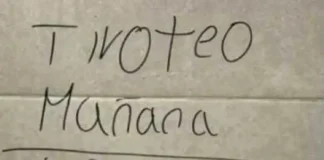 Tiroteo
Mañana